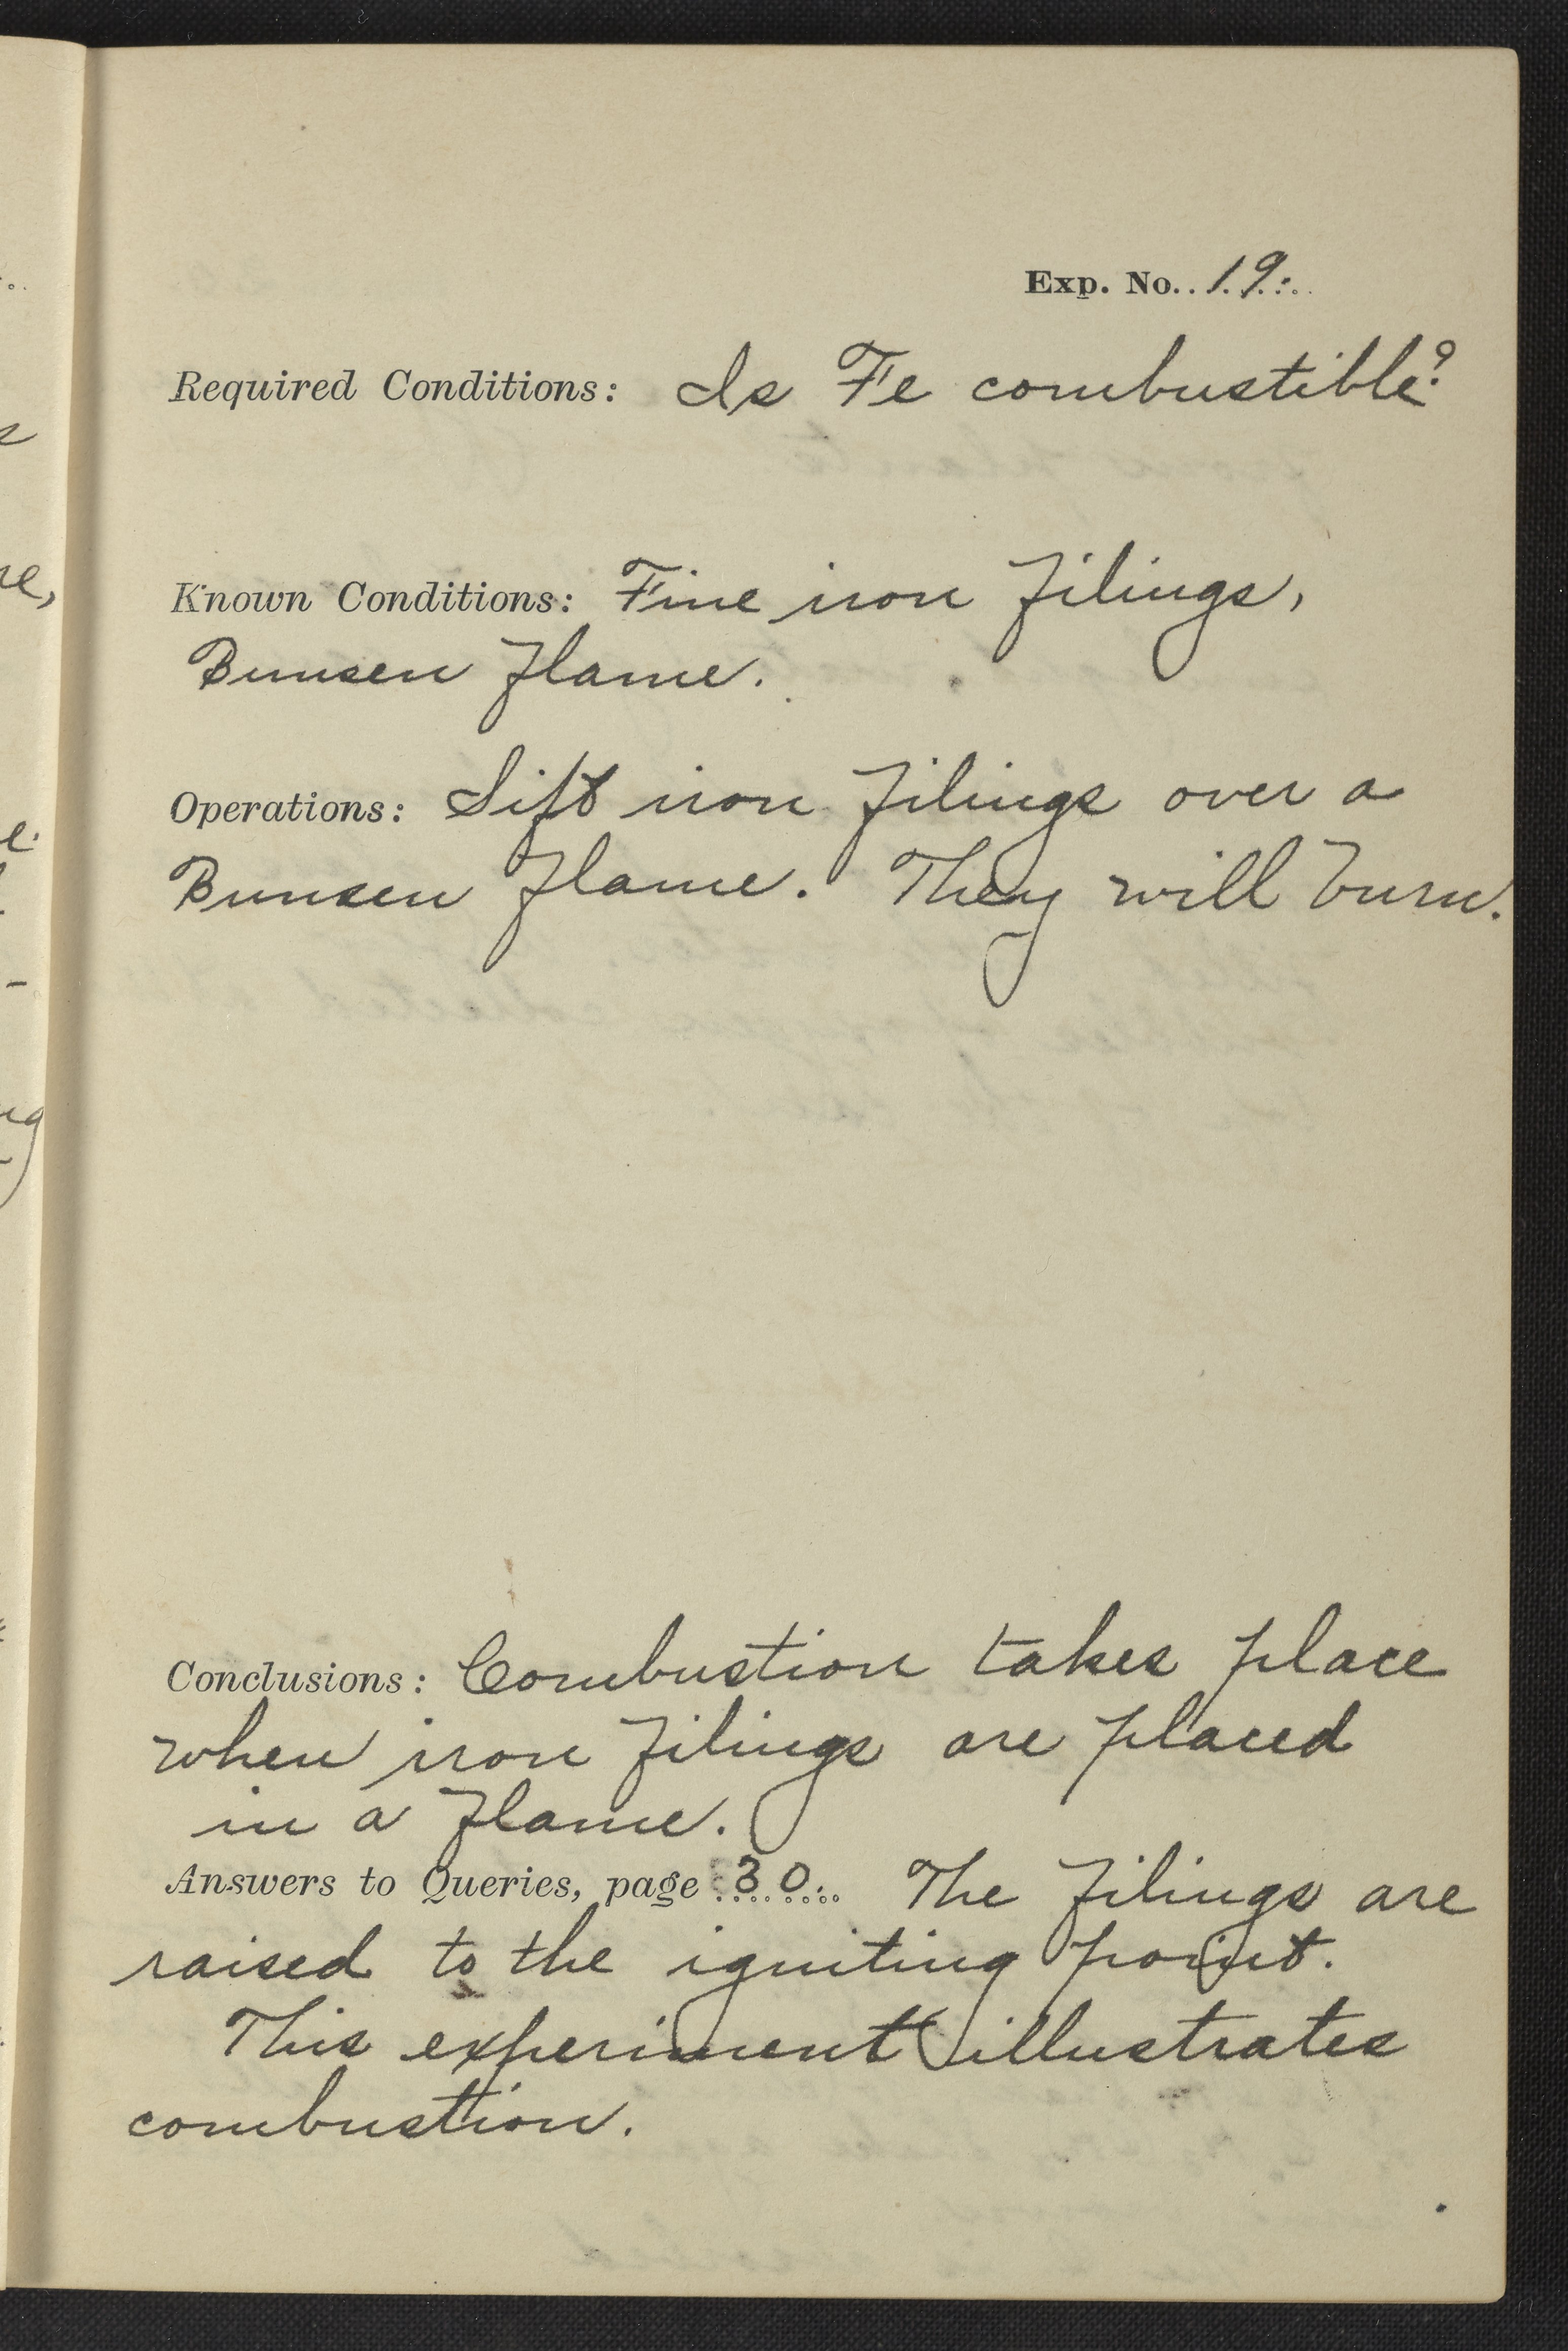 Exp. No. 19.
Required Conditions: Is Fe combustible?
Known Conditions: Fine iron filings,
Bunsen flame.
Operations: Sift iron filings over a
Bunsen flame. They will burn.
Conclusions: Combustion takes place
when iron filings are placed
in a flame.
Answers to Queries, page 30. The filings are
raised to the igniting point.
This experiment illustrates
combustion.